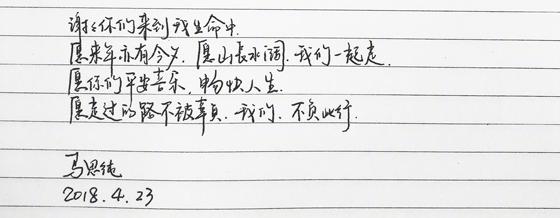 谢谢你们来到我生命中.
愿来年亦有今夕.愿山长水阔.我们一起走.
愿你们平安喜乐,畅快人生.
愿走过的路不被辜负.我们、不负此行.
马思纯
2018.4.23